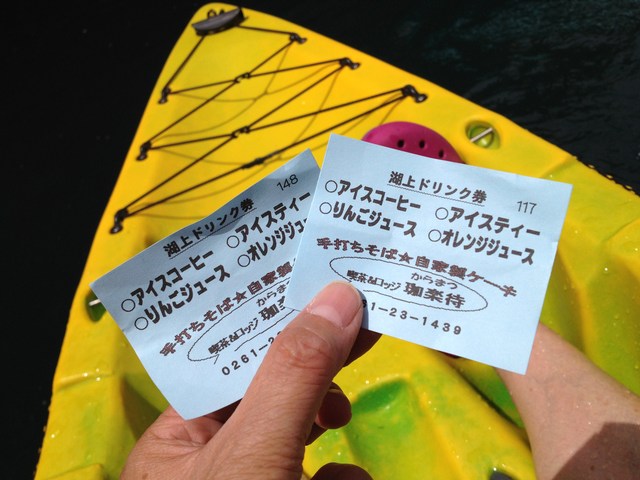 湖上ドリンク券 148
○アイスコーヒー ○アイスティー
○りんごジュース ○オレンジジュー
手打ちそば★自家製
からまつ
喫茶&ロッジ 珈楽
0261-2
湖上ドリンク券 117
○アイスコーヒー ○アイスティー
○りんごジュース ○オレンジジュース
手打ちそば★自家製ケーキ
からまつ
喫茶&ロッジ 珈楽待
61-23-1439